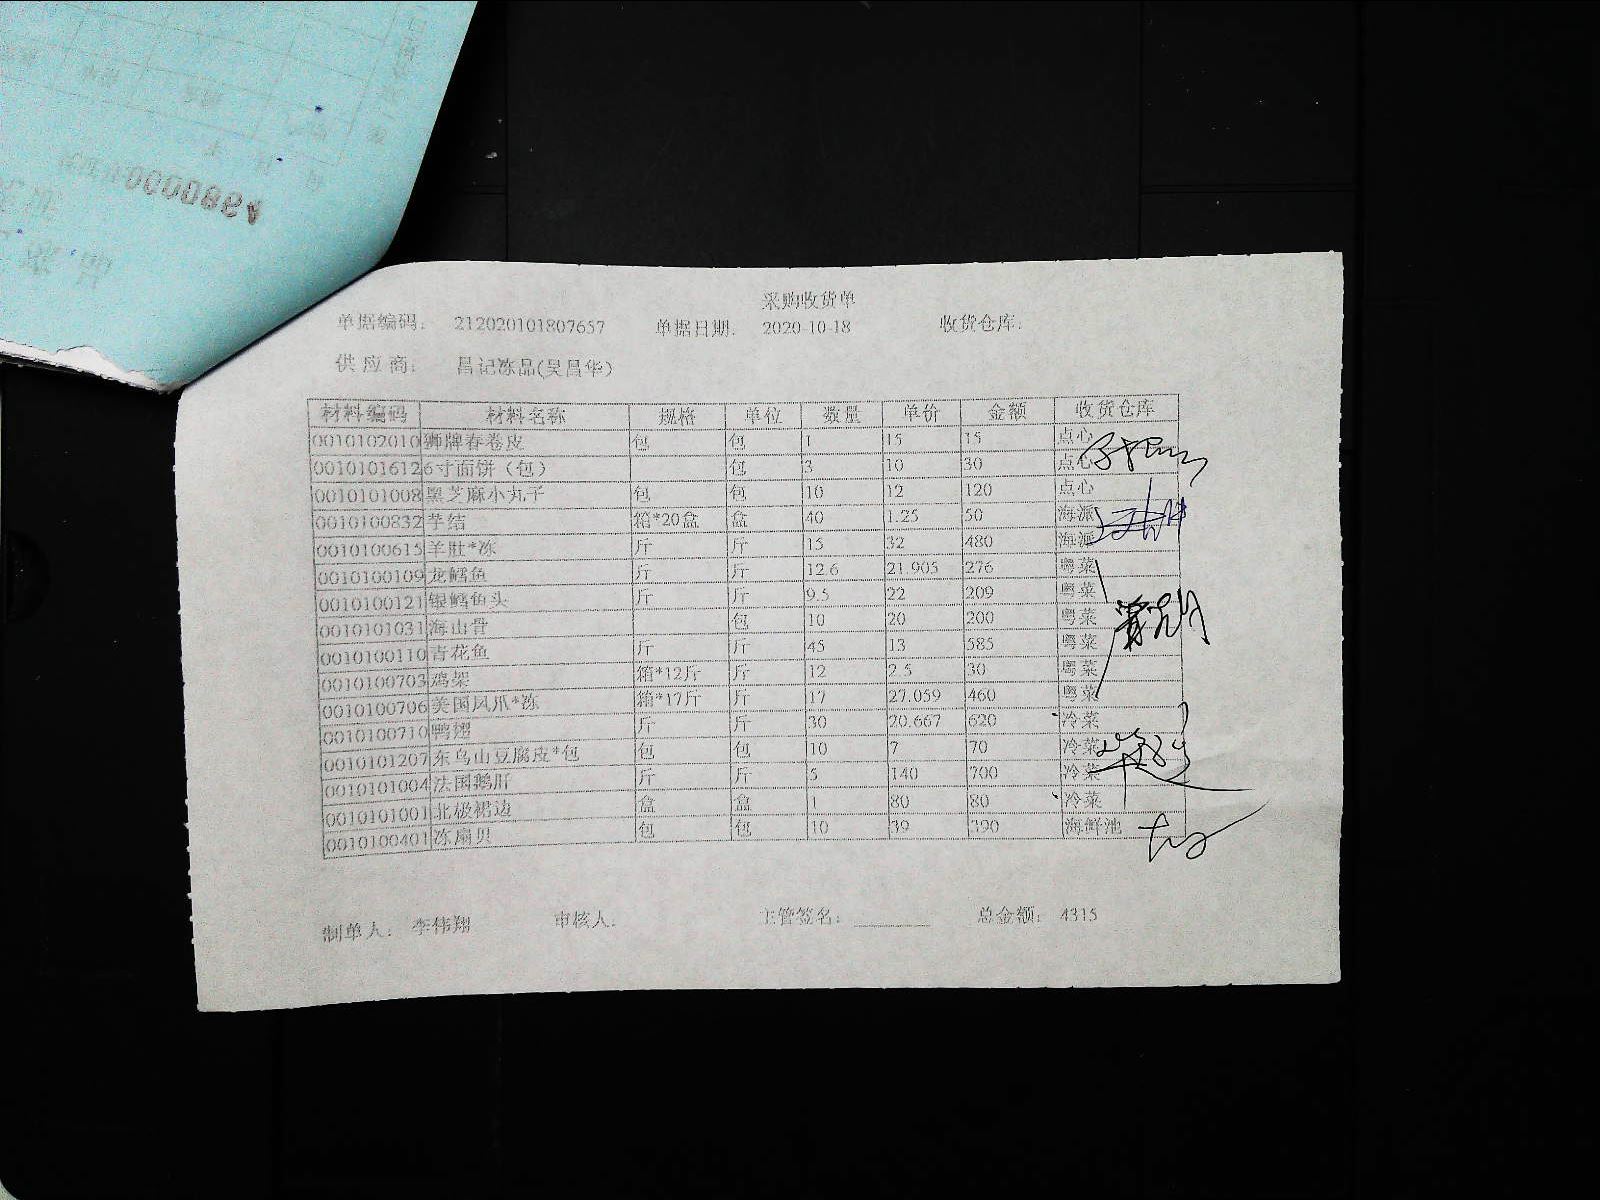 采购收货单
单据编码: 212020101807657 单据日期: 2020-10-18 收货仓库:
供应商: 昌记冻品(吴昌华)
材料编码 材料名称 规格 单位 数量 单价 金额 收货仓库
0010102010 狮牌春卷皮 包 包 1 15 15 点心
0010101612 6寸面饼（包） 包 3 10 30 点心
0010101008 黑芝麻小丸子 包 包 10 12 120 点心
0010100832 芋结 箱*20盒 盒 40 1.25 50 海派
0010100615 羊肚*冻 斤 斤 15 32 480 海派
0010100109 龙鳕鱼 斤 斤 12.6 21.905 276 粤菜
0010100121 银鳕鱼头 斤 斤 9.5 22 209 粤菜
0010101031 海山骨 包 10 20 200 粤菜
0010100110 青花鱼 斤 斤 45 13 585 粤菜
0010100703 鸡架 箱*12斤 斤 12 2.5 30 粤菜
0010100706 美国凤爪*冻 箱*17斤 斤 17 27.059 460 粤菜
0010100710 鸭翅 斤 斤 30 20.667 620 冷菜
0010101207 东乌山豆腐皮*包 包 包 10 7 70 冷菜
0010101004 法国鹅肝 斤 斤 5 140 700 冷菜
0010101001 北极裙边 盒 盒 1 80 80 冷菜
0010100401 冻扇贝 包 包 10 39 390 海鲜池
制单人: 李伟翔 审核人: 主管签名: 总金额: 4315